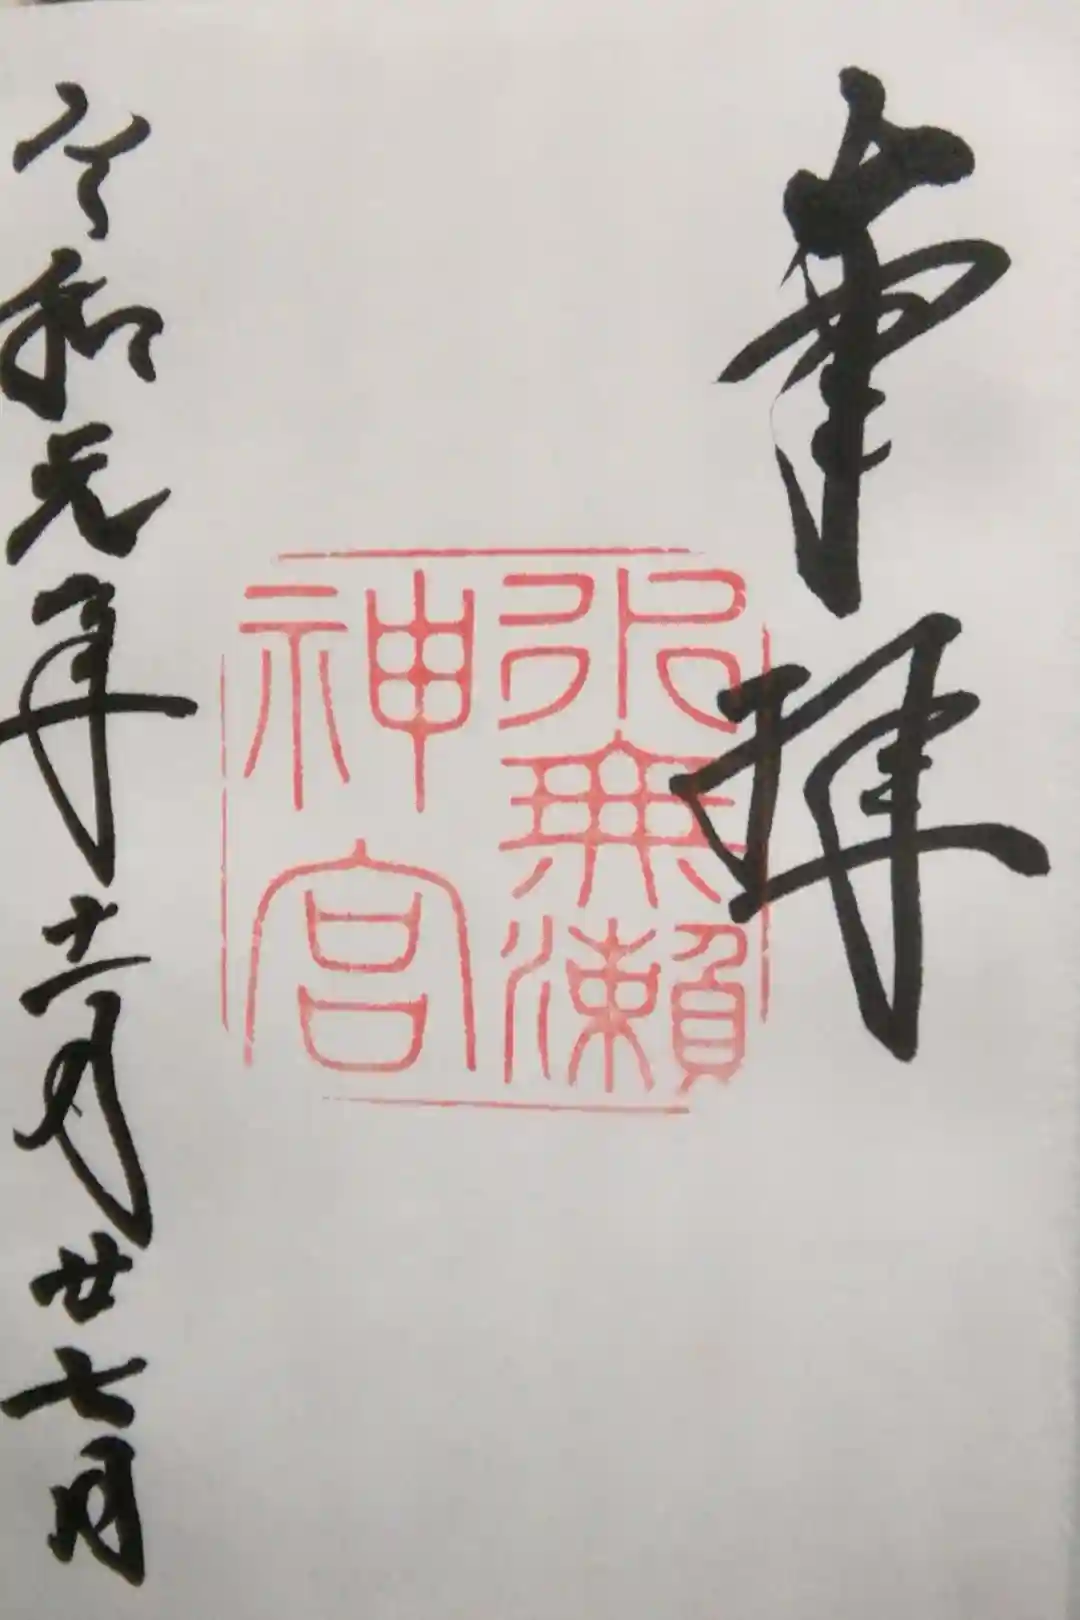 奉拝
水無瀬
神宮
令和元年十二月廿七日